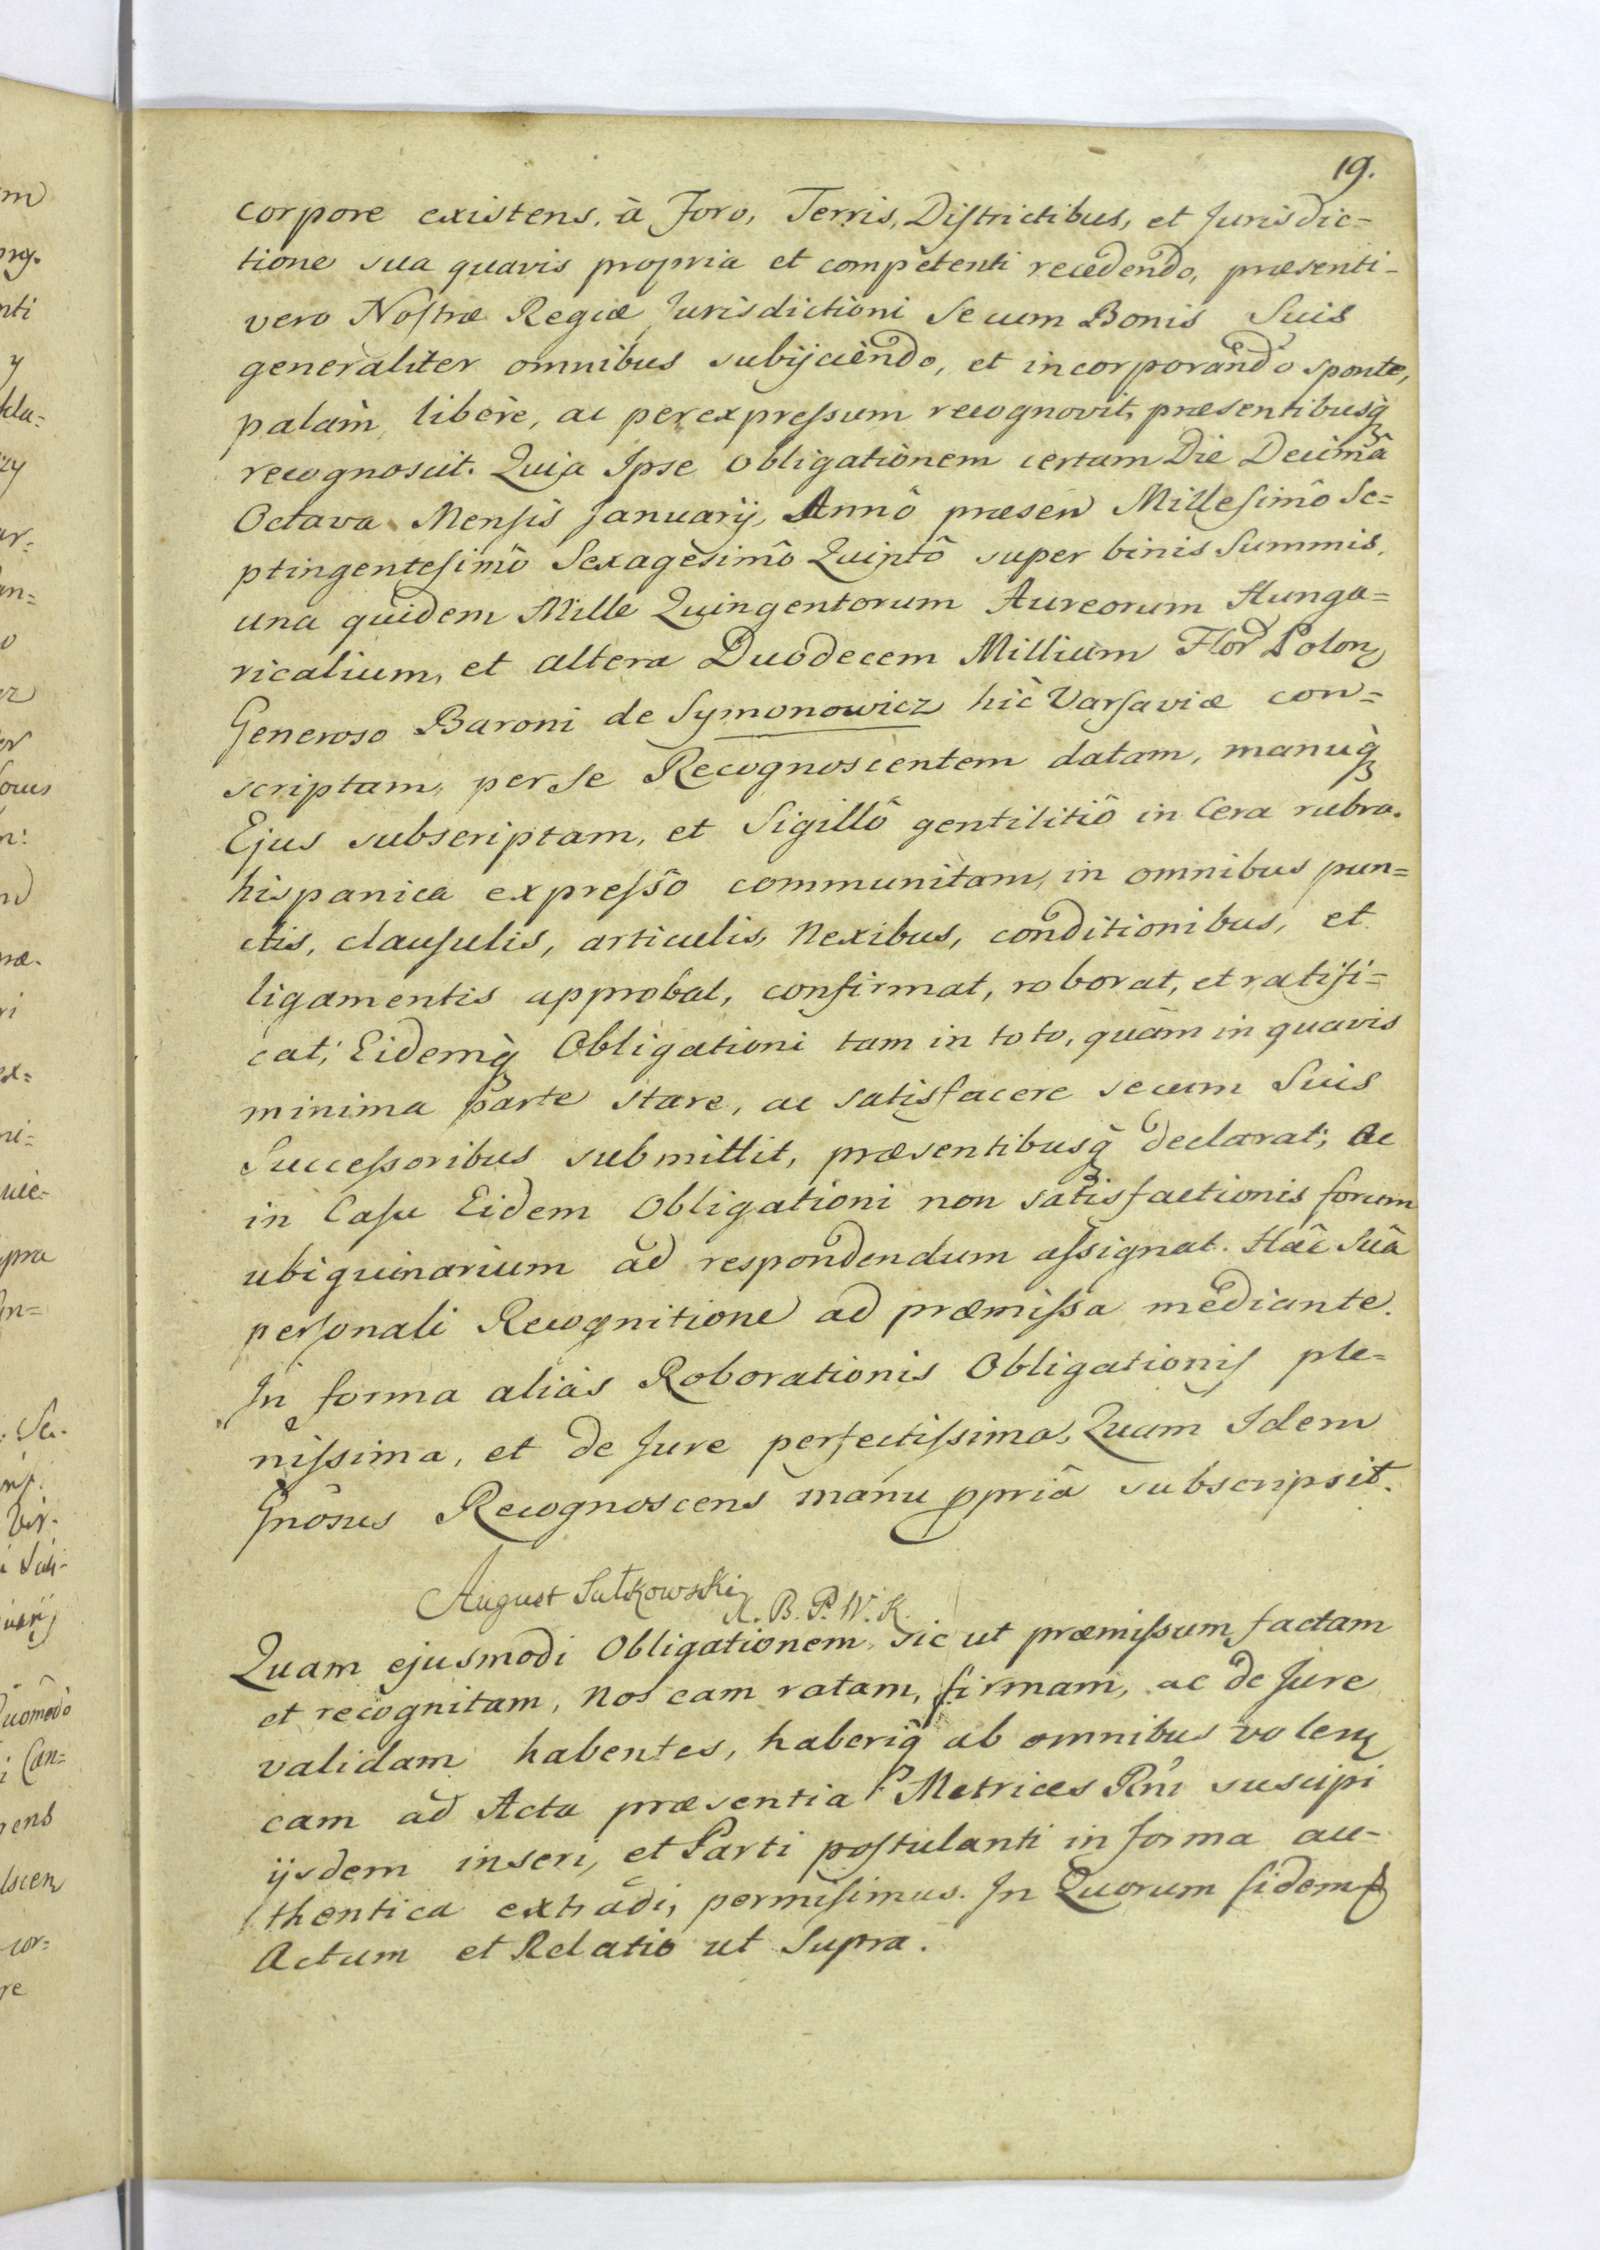 19.
corpore existens, à Foro, Terris, Diſtrictibus, et Jurisdic=
tione sua quavis propria et competenti recedendo, præsenti-
vero Noſtræ Regiæ Jurisdictioni Se cum Bonis Suis
generaliter omnibus subijciendo, et incorporando sponte,
palàm, liberè, ac per expreſsum recognovit, præsentibusq̀
recognoscit. Quia Ipse Obligationem certam Die Decimâ
Octava Mensis Januarij, Annô præsen Milleſimô Se=
ptingenteſimô Sexagesimô Quintô super binis Summis,
una quidem Mille Quingentorum Aureorum Hunga=
ricalium, et altera Duodecem Millium Flor Polon
Generoso Baroni de Symonowicz hìc Varſaviæ con=
scriptam, per Se Recognoscentem datam, manuq̀
Ejus subscriptam, et Sigillô gentilitiô in Cera rubra
hispanica expreſsô communitam, in omnibus pun=
ctis, clauſulis, articulis, Nexibus, conditionibus, et
ligamentis approbat, confirmat, roborat, et ratifi=
cat; Eidemq̀ Obligationi tam in toto, quàm in quavis
minima Parte stare, ac satisfacere secum Suis
Succeſsoribus submittit, præsentibusq̀ declarat; ac
in Caſu Eidem Obligationi non satisfactionis forum
ubiquinarium ad respondendum aſsignat. Hâc Suâ
perſonali Recognitione ad præmiſsa mediante.
In forma alias Roborationis Obligationis ple=
niſsima, et de Jure perfectiſsima, Quam Idem
Gnôsus Recognoscens manu ppriâ subscripsit.
August Sułkowski
X. B. P. W. K.
Quam ejusmodi Obligationem, sic ut præmiſsum factam
et recognitam, Nos eam ratam, firmam, ac de Jure
validam habentes, haberiq̀ ab omnibus volen
eam ad Acta præsentia Metrices Rnì suscipi
ijsdem inseri, et Parti poſtulanti in forma au=
thentica extradi, permiſimus. In Quorum fidem
Actum et Relatio ut Supra.